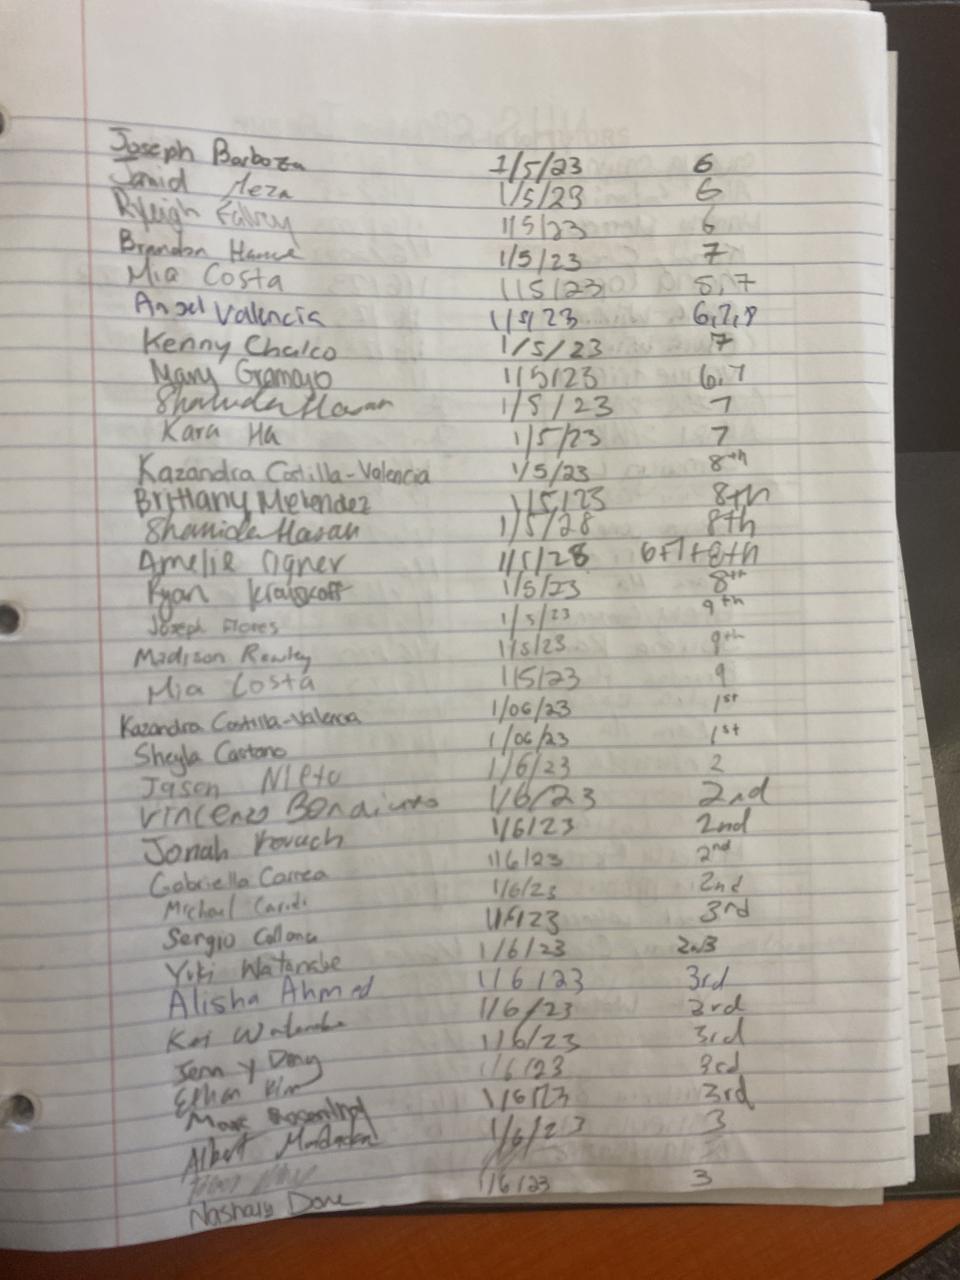 Joseph Barboza 1/5/23 6
Jamid Meza 1/5/23 6
Ryleigh Fahry 1/5/23 6
Brandon 1/5/23 7
Mia Costa 1/5/23 8,7
Angel Valencia 1/5/23 6,7,8
Kenny Chalco 1/5/23 7
Mary Gramayo 1/5/23 6,7
Shanida Hasan 1/5/23 7
Kara Ha 1/5/23 7
Kazandra Costilla-Valencia 1/5/23 8th
Brittany Melendez 1/5/23 8th
Shanida Hasan 1/5/28 8th
Amelie Ogner 1/5/28 6+7+8th
Ryan 1/5/23 8th
Joseph Flores 1/5/23 9th
Madison Rowley 1/5/23 9th
Mia Costa 1/5/23 9
Kazandra Costilla-Valencia 1/06/23 1st
Sheyla Castano 1/06/23 1st
Jason Nieto 1/6/23 2
Vincenzo 1/6/23 2nd
Jonah Kovach 1/6/23 2nd
Gabriella Correa 1/6/23 2nd
Michael Caridi 1/6/23 2nd
Sergio 1/6/23 3rd
Yuki Watanabe 1/6/23 2nd3
Alisha Ahmed 1/6/23 3rd
Kai Watanabe 1/6/23 3rd
Jenny Dong 1/6/23 3rd
Ethan Kim 1/6/23 3rd
Marc Rosenthal 1/6/23 3rd
Albert 1/6/23 3
Nashaly Done 1/6/23 3